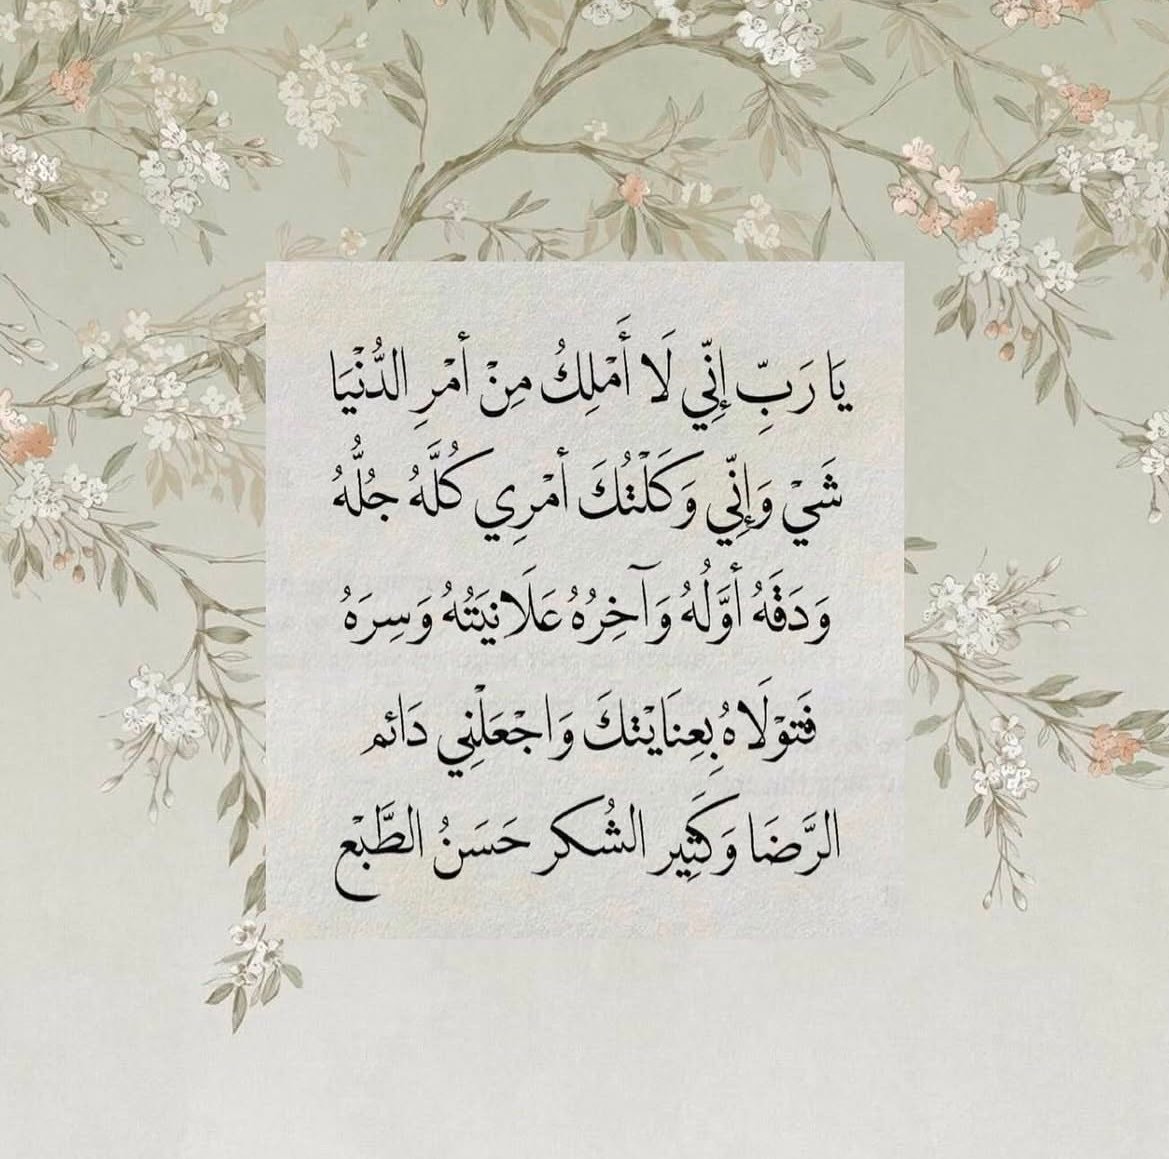 يَا رَبِّ إِنِّي لَا أَمْلِكُ مِنْ أمْرِ الدُّنْيَا
شَيْ وَإِنِّي وَكَلْتُكَ أمْرِي كُلَّهُ جُلُّهُ
وَدَقَهُ أوَّلُهُ وَآخِرُهُ عَلَانيَتُهُ وَسِرَهُ
فَتوْلَاهُ بِعِنَايْتكَ وَاجْعَلْنِي دَائم
الرَّضَا وَكَثِير الشُكر حَسَنُ الطَّبْع